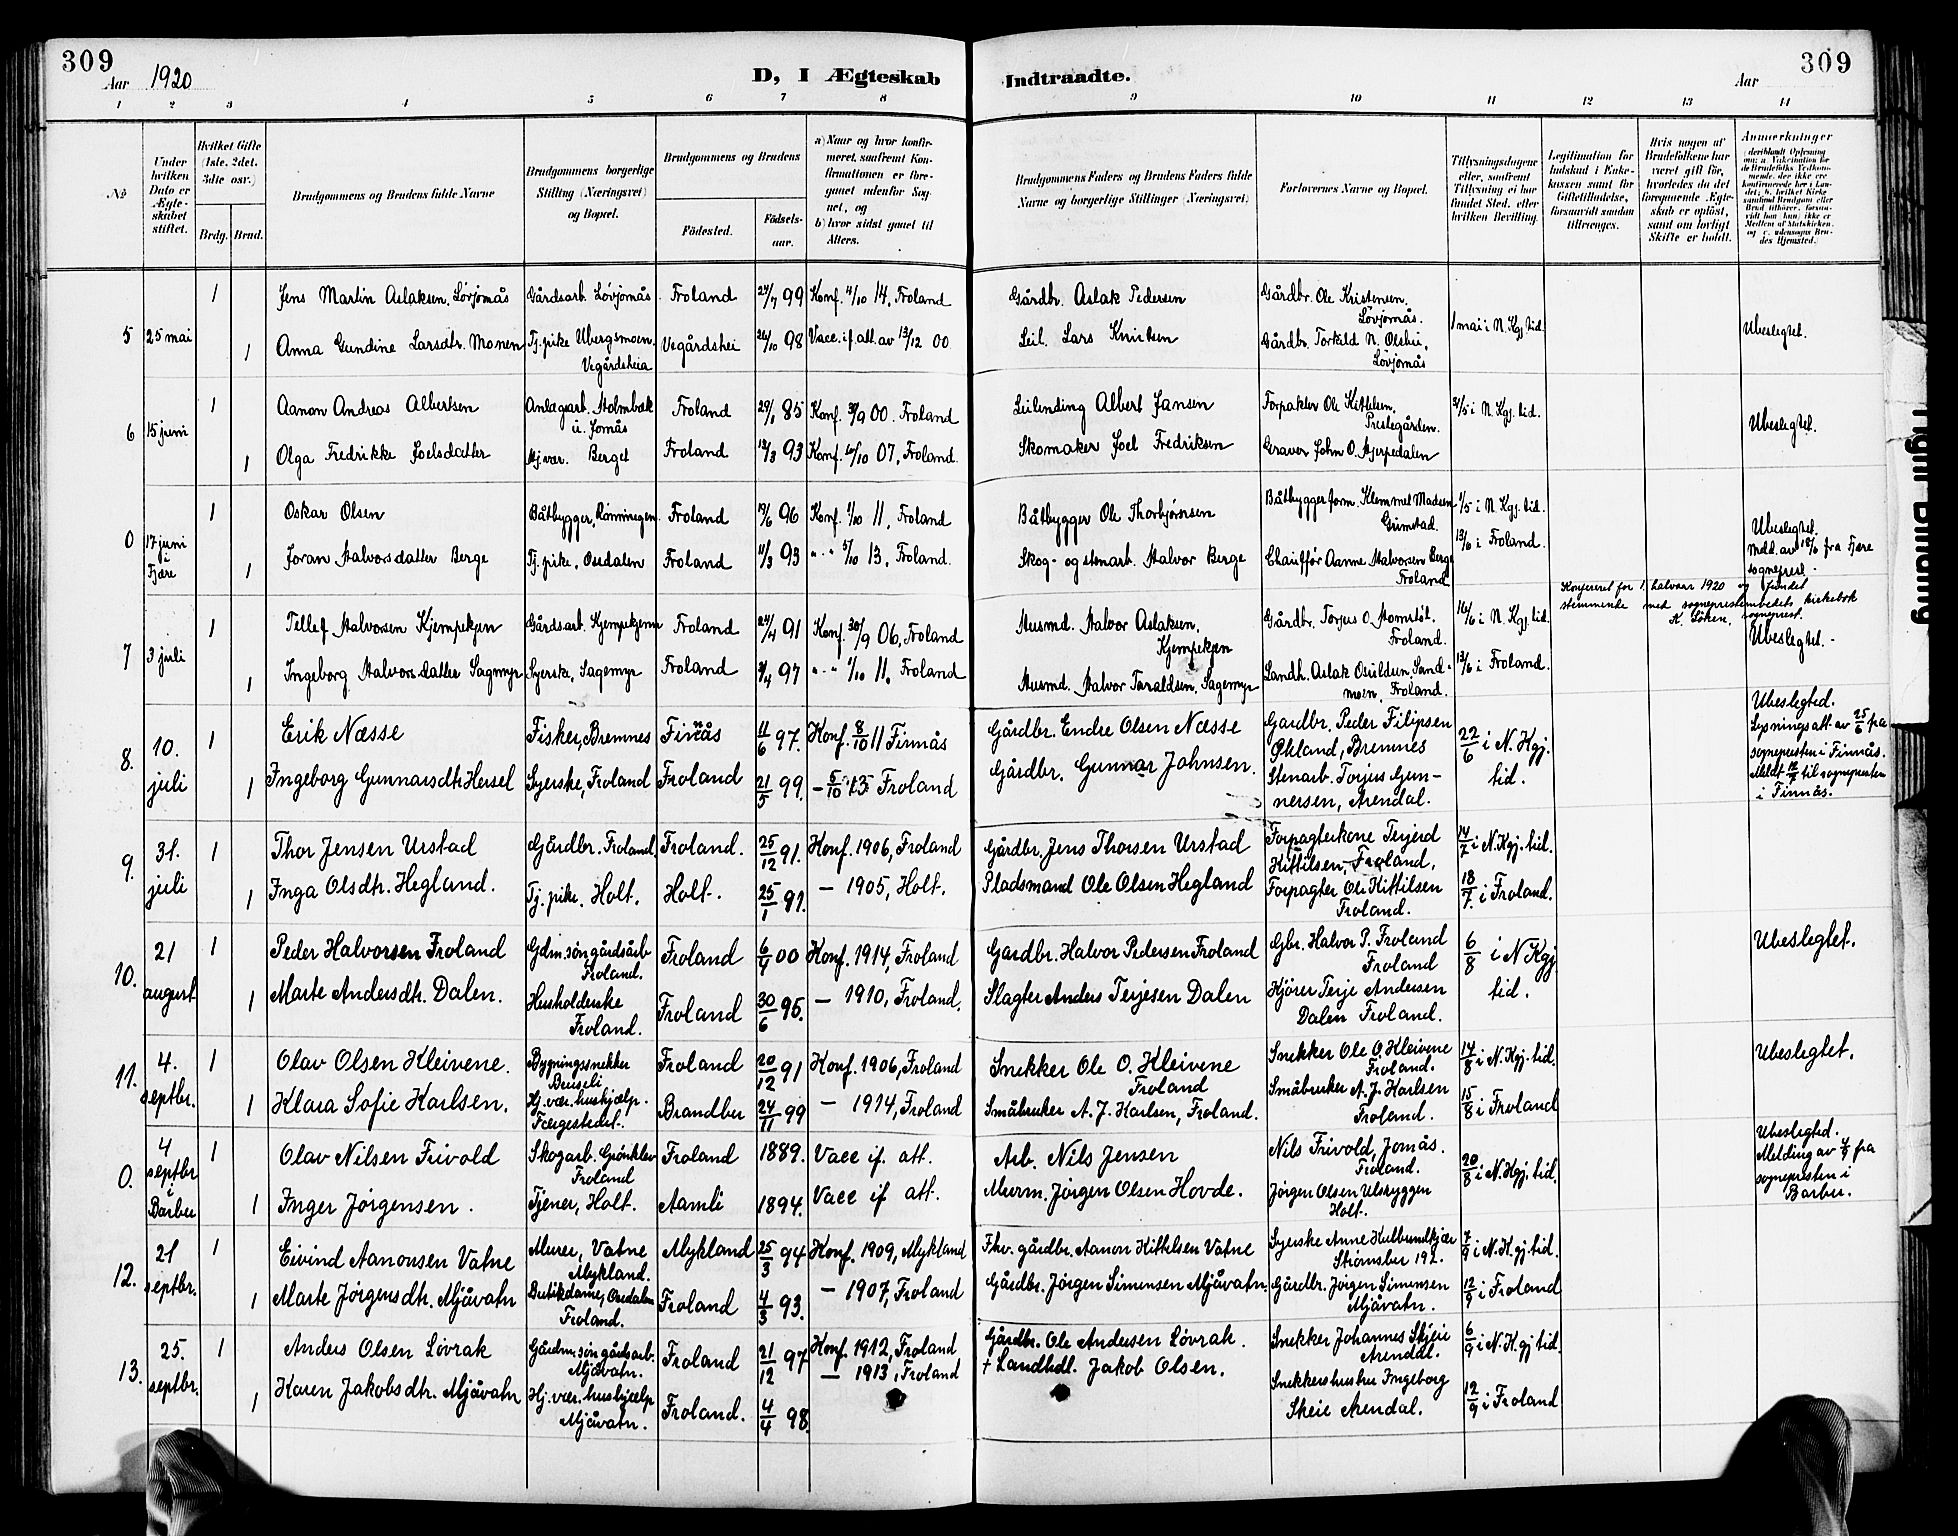 309
Aar 1920
D, I Ægteskab
Indtraadte.
Aar
309
1 2 3 4 5 6 7 8 9 10 11 12 13 14
No
Under hvilken Dato er Ægteskabet stiftet.
Hvilket Gifte (1ste, 2det, 3die osv.)
Brdg. Brud.
Brudgommens og Brudens fulde Navne
Brudgommens borgerlige Stilling (Næringsvei) og Bopæl.
Brudgommens og Brudens
Födested.
Födselsaar.
a) Naar og hvor konfirmeret, saafremt Konfirmationen er foregaaet udenfor Sognet, og
b) hvor sidst gaaet til Alters.
Brudgommens Faders og Brudens Faders fulde Navne og borgerlige Stillinger (Næringsvei)
Forlovernes Navne og Bopæl.
Tillysningsdagene eller, saafremt Tillysning ei har fundet Sted, efter hvilken Bevilling.
Legitimation for Indskud i Enkekassen samt for Giftetilladelse, forsaavidt saadan tiltrænges.
Hvis nogen af Brudefolkene har været gift før, hvorledes da det foregaaende Ægteskab er opløst, samt om lovligt Skifte er holdt.
Anmerkninger
5 25 mai
1 Jens Martin Aslaksen, Lövjomås Gårdsarb. Lövjomås. Froland 24/7 99 Konf. 4/10 14, Froland Gårdbr. Aslak Pedersen Gårdbr. Ole Kristensen, Lövjomås. 1 mai i N. Kgj. tid. Ubeslegtet.
1 Anna Gundine Larsdtr. Monen Tj. pike Ubergsmoen. Vegårdsheia Vegårdshei 26/10 98 Vacc. if. att. av 13/12 00 Leil. Lars Knutsen Gårdbr. Torkild N. Olshei, Lövjomås
6 15 juni
1 Aanon Andreas Albertsen Anlagarb. Holmbæk u. Jomås Froland 29/1 85 Konf. 30/9 00. Froland Leilending Albert Jansen Forpakter Ole Kittelsen, Prestegården. 21/5 i N. Kgj. tid. Ubeslegtet.
1 Olga Fredrikke Joelsdatter Hj. vær. Berget Froland 12/3 93 Konf. 6/10 07, Froland. Skomaker Joel Fredriksen Graver John O. Hjerpedalen
0 17 juni i Fjære
1 Oskar Olsen Båtbygger, Rönningen. Froland 19/6 96 Konf. 1/10 11, Froland Båtbygger Ole Thorbjørnsen Båtbygger form. Klemmet Madsen Grimstad. 1/5 i N. Kgj. tid. Ubeslegtet. Meld. av 18/6 fra Fjære sogneprest.
1 Joran Halvorsdatter Berge Tj. pike, Osedalen Froland 11/3 93 " - " 5/10 13, Froland. Skog- og stenarb. Halvor Berge Chauffør Aanne Halvorsen Berge Froland 13/6 i Froland.
Konfereret for 1. halvaar 1920 og fundet
stemmende med sogneprestembedets kirkebok
K. Löken, sogneprest.
7 3 juli
1 Tellef Halvorsen Kjempekjen Gårdsarb. Kjempekjenn Froland 24/4 91 Konf. 30/9 06, Froland Husmd. Halvor Aslaksen, Kjempekjen Gårdbr. Torjus O. Homstøl, Froland. 16/6 i N. Kgj. tid. Ubeslegtet.
1 Ingeborg Halvorsdatter Sagmyr Syerske, Sagemyr Froland 97 " - " 1/10 11. Froland Husmd. Halvor Taraldsen, Sagemyr Landh. Aslak Osuldsen, Sandmoen, Froland. 13/6 i Froland.
8. 10. juli
1 Erik Næsse Fisker, Bremnes Finnås 11/6 97. Konf. 8/10 11 Finnås Gårdbr. Endre Olsen Næsse Gardbr. Peder Filipsen Økland, Bremnes 22/6 i N. Kgj. tid. Ubeslegted. Lysningsatt. av 25/6 fra sognepresten i Finnås. Meldt 12/7 til sognepresten i Finnås.
1 Ingeborg Gunnarsdtr Hersel Syerske, Froland Froland 21/5 99. - 5/10 13 Froland Gårdbr. Gunnar Johnsen. Stenarb. Torjus Gunnersen, Arendal.
9. 31. juli
1 Thor Jensen Urstad Gårdbr. Froland, Froland. 25/12 91. Konf. 1906, Froland Gårdbr. Jens Thorsen Urstad Forpagterkone Terjerd Kittilsen, Froland, 14/7 i N. Kgj. tid.
1 Inga Olsdtr. Hegland. Tj. pike. Holt. Holt. 25/1 91. — 1905, Holt. Pladsmand Ole Olsen Hegland Forpagter Ole Kittilsen Froland. 18/7. i Froland.
10. 21 august
1 Peder Halvorsen Froland Gdm. søn gårdsårb Froland. Froland 6/4 00 Konf. 1914, Froland Gardbr. Halvor Pedersen Froland Gbr. Halvor P. Froland Froland 6/8 i N Kgj tid. Ubeslegtet.
1 Marte Andersdtr. Dalen. Husholderske Froland. Froland 30/6 95. — 1910, Froland. Slagter Anders Terjesen Dalen Kjører Terje Andersen Dalen Froland.
11. 4. septbr.
1 Olav Olsen Kleivene. Bygningssnekker Beuseli Froland 20/12 91 Konf. 1906, Froland Snekker Ole O. Kleivene Froland Snekker Ole O. Kleivene Froland. 14/8 i N. Kgj. tid. Ubeslegtet.
1 Klara Sofie Karlsen. Hj. vær. hushjælp. Færgestedet. Brandbu 24/11 99 — 1914, Froland Småbruker A. J. Karlsen, Froland. Småbruker A. J. Karlsen Froland. 15/8 i Froland
0. 4 septbr i Barbu
1 Olav Nilsen Frivold Skogarb. Froland Froland 1889. Vacc if. att. Arb. Nils Jensen Nils Frivold, Jomås. Froland. 20/8 i N. Kgj. tid. Ubeslegted. Melding av 4/9 fra sognepresten i Barbu.
1 Inger Jørgensen. Tjener, Holt. Aamli 1894. Vacc if att. Murm. Jørgen Olsen Hovde. Jörgen Olsen Ulskyggen Holt.
12. 21 septbr.
1 Eivind Aanonsen Vatne Murer, Vatne Mykland. Mykland 25/3 94 Konf. 1909, Mykland Fhv. gårdbr. Aanon Kittelsen Vatne Syerske Anne Strømsbu 192. 7/9 i N. K. gj tid.
1 Marte Jørgensdtr. Mjåvatn Butikdame, Osedalen Froland. Froland 4/3 93. — 1907, Froland Gårdbr. Jörgen Simensen Mjåvatn. Gårdbr. Jörgen Simensen Mjåvatn. 12/9 i Froland
13. 25. septbr.
1 Anders Olsen Løvrak Gårdm. søn gårdsarb. Mjåvatn. Froland 21/12 97 Konf. 1912, Froland Gårdbr. Ole Andersen Løvrak. Snekker Johannes Skjeie Arendal. 6/9 i N. K. gj tid.
1 Karen Jakobsdtr. Mjåvatn Hj. vær. hushjælp Mjåvatn. Froland. 4/4 98. — 1913, Froland † Landhdl. Jakob Olsen. Snekkers hustru Ingeborg Skeie Arendal. 12/9 i Froland